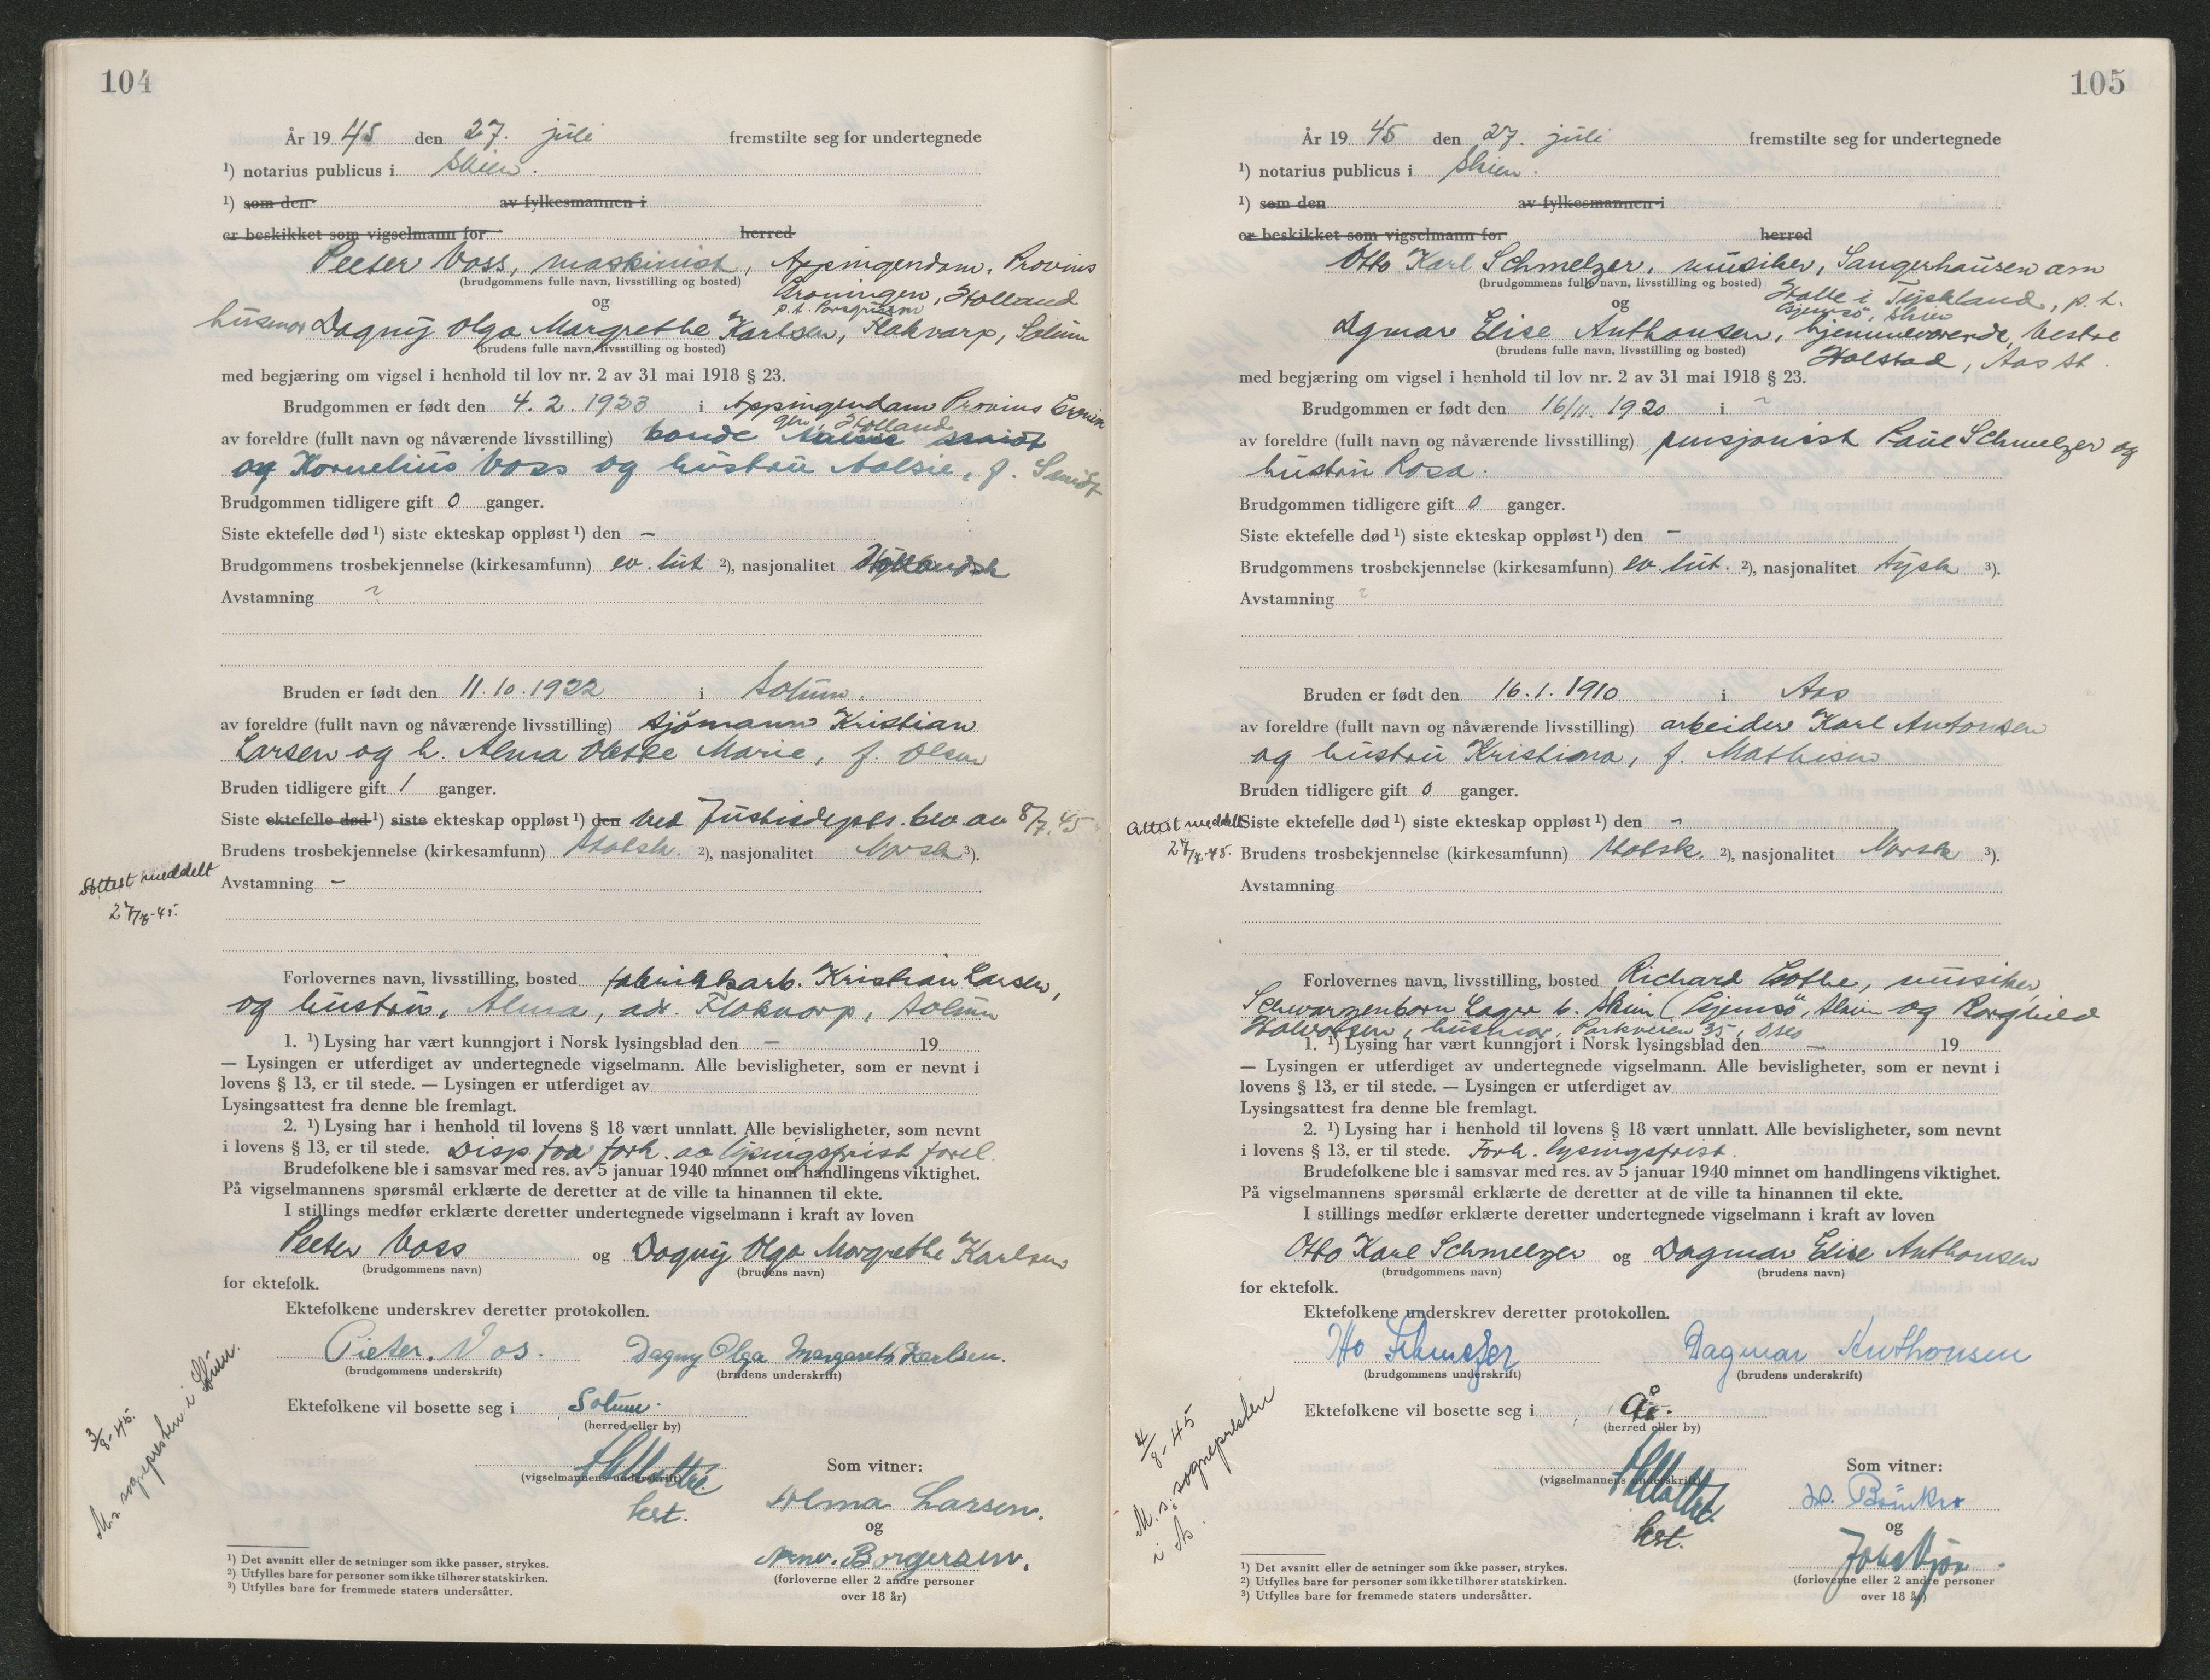 104
År 19 45 den 27. juli fremstilte seg for undertegnede
¹) notarius publicus i Skien.
¹) som den av fylkesmannen i
er beskikket som vigselmann for herred
Peeter Voss, maskinist, Appingendam, Provins
(brudgommens fulle navn, livsstilling og bosted)
Groningen, Holland
og
p.t. Porsgrunn
husmor Dagny Olga Margrethe Karlsen, Flakvarp, Solum
(brudens fulle navn, livsstilling og bosted)
med begjæring om vigsel i henhold til lov nr. 2 av 31 mai 1918 § 23.
Brudgommen er født den 4.2.1923 i Appingendam Provins Gronin
gen, Holland
av foreldre (fullt navn og nåværende livsstilling) bonde Aalsie Smidt
og Kornelius Voss og hustru Aalsie, f. Smidt
Brudgommen tidligere gift 0 ganger.
Siste ektefelle død ¹) siste ekteskap oppløst ¹) den –
Brudgommens trosbekjennelse (kirkesamfunn) ev. lut ²), nasjonalitet Hollandsk
Avstamning ?
Bruden er født den 11.10.1922 i Solum.
av foreldre (fullt navn og nåværende livsstilling) sjömann Kristian
Larsen og h. Alma Olette Marie, f. Olsen
Bruden tidligere gift 1 ganger.
Siste ektefelle død ¹) siste ekteskap oppløst ¹) den ved Justisdepts. bev. av 8/7.45
Brudens trosbekjennelse (kirkesamfunn) Statsk. ²), nasjonalitet Norsk ³).
Attest meddelt
27/7-45.
Avstamning –
Forlovernes navn, livsstilling, bosted fabrikkarb. Kristian Larsen,
og hustru, Alma, adr. Flakvarp, Solum
1. ¹) Lysing har vært kunngjort i Norsk lysingsblad den – 19
— Lysingen er utferdiget av undertegnede vigselmann. Alle bevisligheter, som er nevnt i
lovens § 13, er til stede. — Lysingen er utferdiget av
Lysingsattest fra denne ble fremlagt.
2. ¹) Lysing har i henhold til lovens § 18 vært unnlatt. Alle bevisligheter, som nevnt
i lovens § 13, er til stede. Disp. fra forh. av lysingsfrist forel.
Brudefolkene ble i samsvar med res. av 5 januar 1940 minnet om handlingens viktighet.
På vigselmannens spørsmål erklærte de deretter at de ville ta hinannen til ekte.
I stillings medfør erklærte deretter undertegnede vigselmann i kraft av loven
Peeter Voss og Dagny Olga Margrethe Karlsen
(brudgommens navn) (brudens navn)
for ektefolk.
Ektefolkene underskrev deretter protokollen.
Pieter. Vos. Dagny Olga Margareth Karlsen.
(brudgommens underskrift) (brudens underskrift)
Ektefolkene vil bosette seg i Solum.
(herred eller by)
3/8-45.
M. s. sognepresten i Solum.
(vigselmannens underskrift)
Som vitner:
Alma Larsen.
og
Borgersen.
(forloverne eller 2 andre personer
over 18 år)
¹) Det avsnitt eller de setninger som ikke passer, strykes.
²) Utfylles bare for personer som ikke tilhører statskirken.
³) Utfylles bare for fremmede staters undersåtter.
105
År 19 45 den 27. juli fremstilte seg for undertegnede
¹) notarius publicus i Skien.
¹) som den av fylkesmannen i
er beskikket som vigselmann for herred
Otto Karl Schmelzer, musiker, Sangerhausen am
(brudgommens fulle navn, livsstilling og bosted)
Halle i Tyskland, p.t.
og
Gjemsö, Skien
Dgmar Elise Anthonsen, hjemmeværende, Vestre
(brudens fulle navn, livsstilling og bosted)
Holstad, Aas st.
med begjæring om vigsel i henhold til lov nr. 2 av 31 mai 1918 § 23.
Brudgommen er født den 16/11. 1920 i ?
av foreldre (fullt navn og nåværende livsstilling) pensjonist Paul Schmelzer og
hustru Rosa.
Brudgommen tidligere gift 0 ganger.
Siste ektefelle død ¹) siste ekteskap oppløst ¹) den –
Brudgommens trosbekjennelse (kirkesamfunn) ev. lut. ²), nasjonalitet tysk ³).
Avstamning ?
Bruden er født den 16.1.1910 i Aas
av foreldre (fullt navn og nåværende livsstilling) arbeider Karl Antonsen
og hustru Kristiana, f. Mathisen
Bruden tidligere gift 0 ganger.
Attest meddelt
27/7-45.
Siste ektefelle død ¹) siste ekteskap oppløst ¹) den –
Brudens trosbekjennelse (kirkesamfunn) Statsk. ²), nasjonalitet Norsk ³).
Avstamning
Forlovernes navn, livsstilling, bosted Richard Gothe, musiker,
Schwarzenborn Lager b. Skien (Gjemsö, Skien og Borghild
Halvorsen, husmor, Parkveien 35, Oslo
1. ¹) Lysing har vært kunngjort i Norsk lysingsblad den – 19
— Lysingen er utferdiget av undertegnede vigselmann. Alle bevisligheter, som er nevnt i
lovens § 13, er til stede. — Lysingen er utferdiget av
Lysingsattest fra denne ble fremlagt.
2. ¹) Lysing har i henhold til lovens § 18 vært unnlatt. Alle bevisligheter, som nevnt
i lovens § 13, er til stede. Forh. lysingsfrist.
Brudefolkene ble i samsvar med res. av 5 januar 1940 minnet om handlingens viktighet.
På vigselmannens spørsmål erklærte de deretter at de ville ta hinannen til ekte.
I stillings medfør erklærte deretter undertegnede vigselmann i kraft av loven
Otto Karl Schmelzer og Dagmar Elise Anthonsen
(brudgommens navn) (brudens navn)
for ektefolk.
Ektefolkene underskrev deretter protokollen.
Otto Schmelzer Dagmar Anthonsen
(brudgommens underskrift) (brudens underskrift)
Ektefolkene vil bosette seg i Ås.
(herred eller by)
4/8-45
M. s. sognepresten
i Ås.
(vigselmannens underskrift)
Som vitner:
og
(forloverne eller 2 andre personer
over 18 år)
¹) Det avsnitt eller de setninger som ikke passer, strykes.
²) Utfylles bare for personer som ikke tilhører statskirken.
³) Utfylles bare for fremmede staters undersåtter.